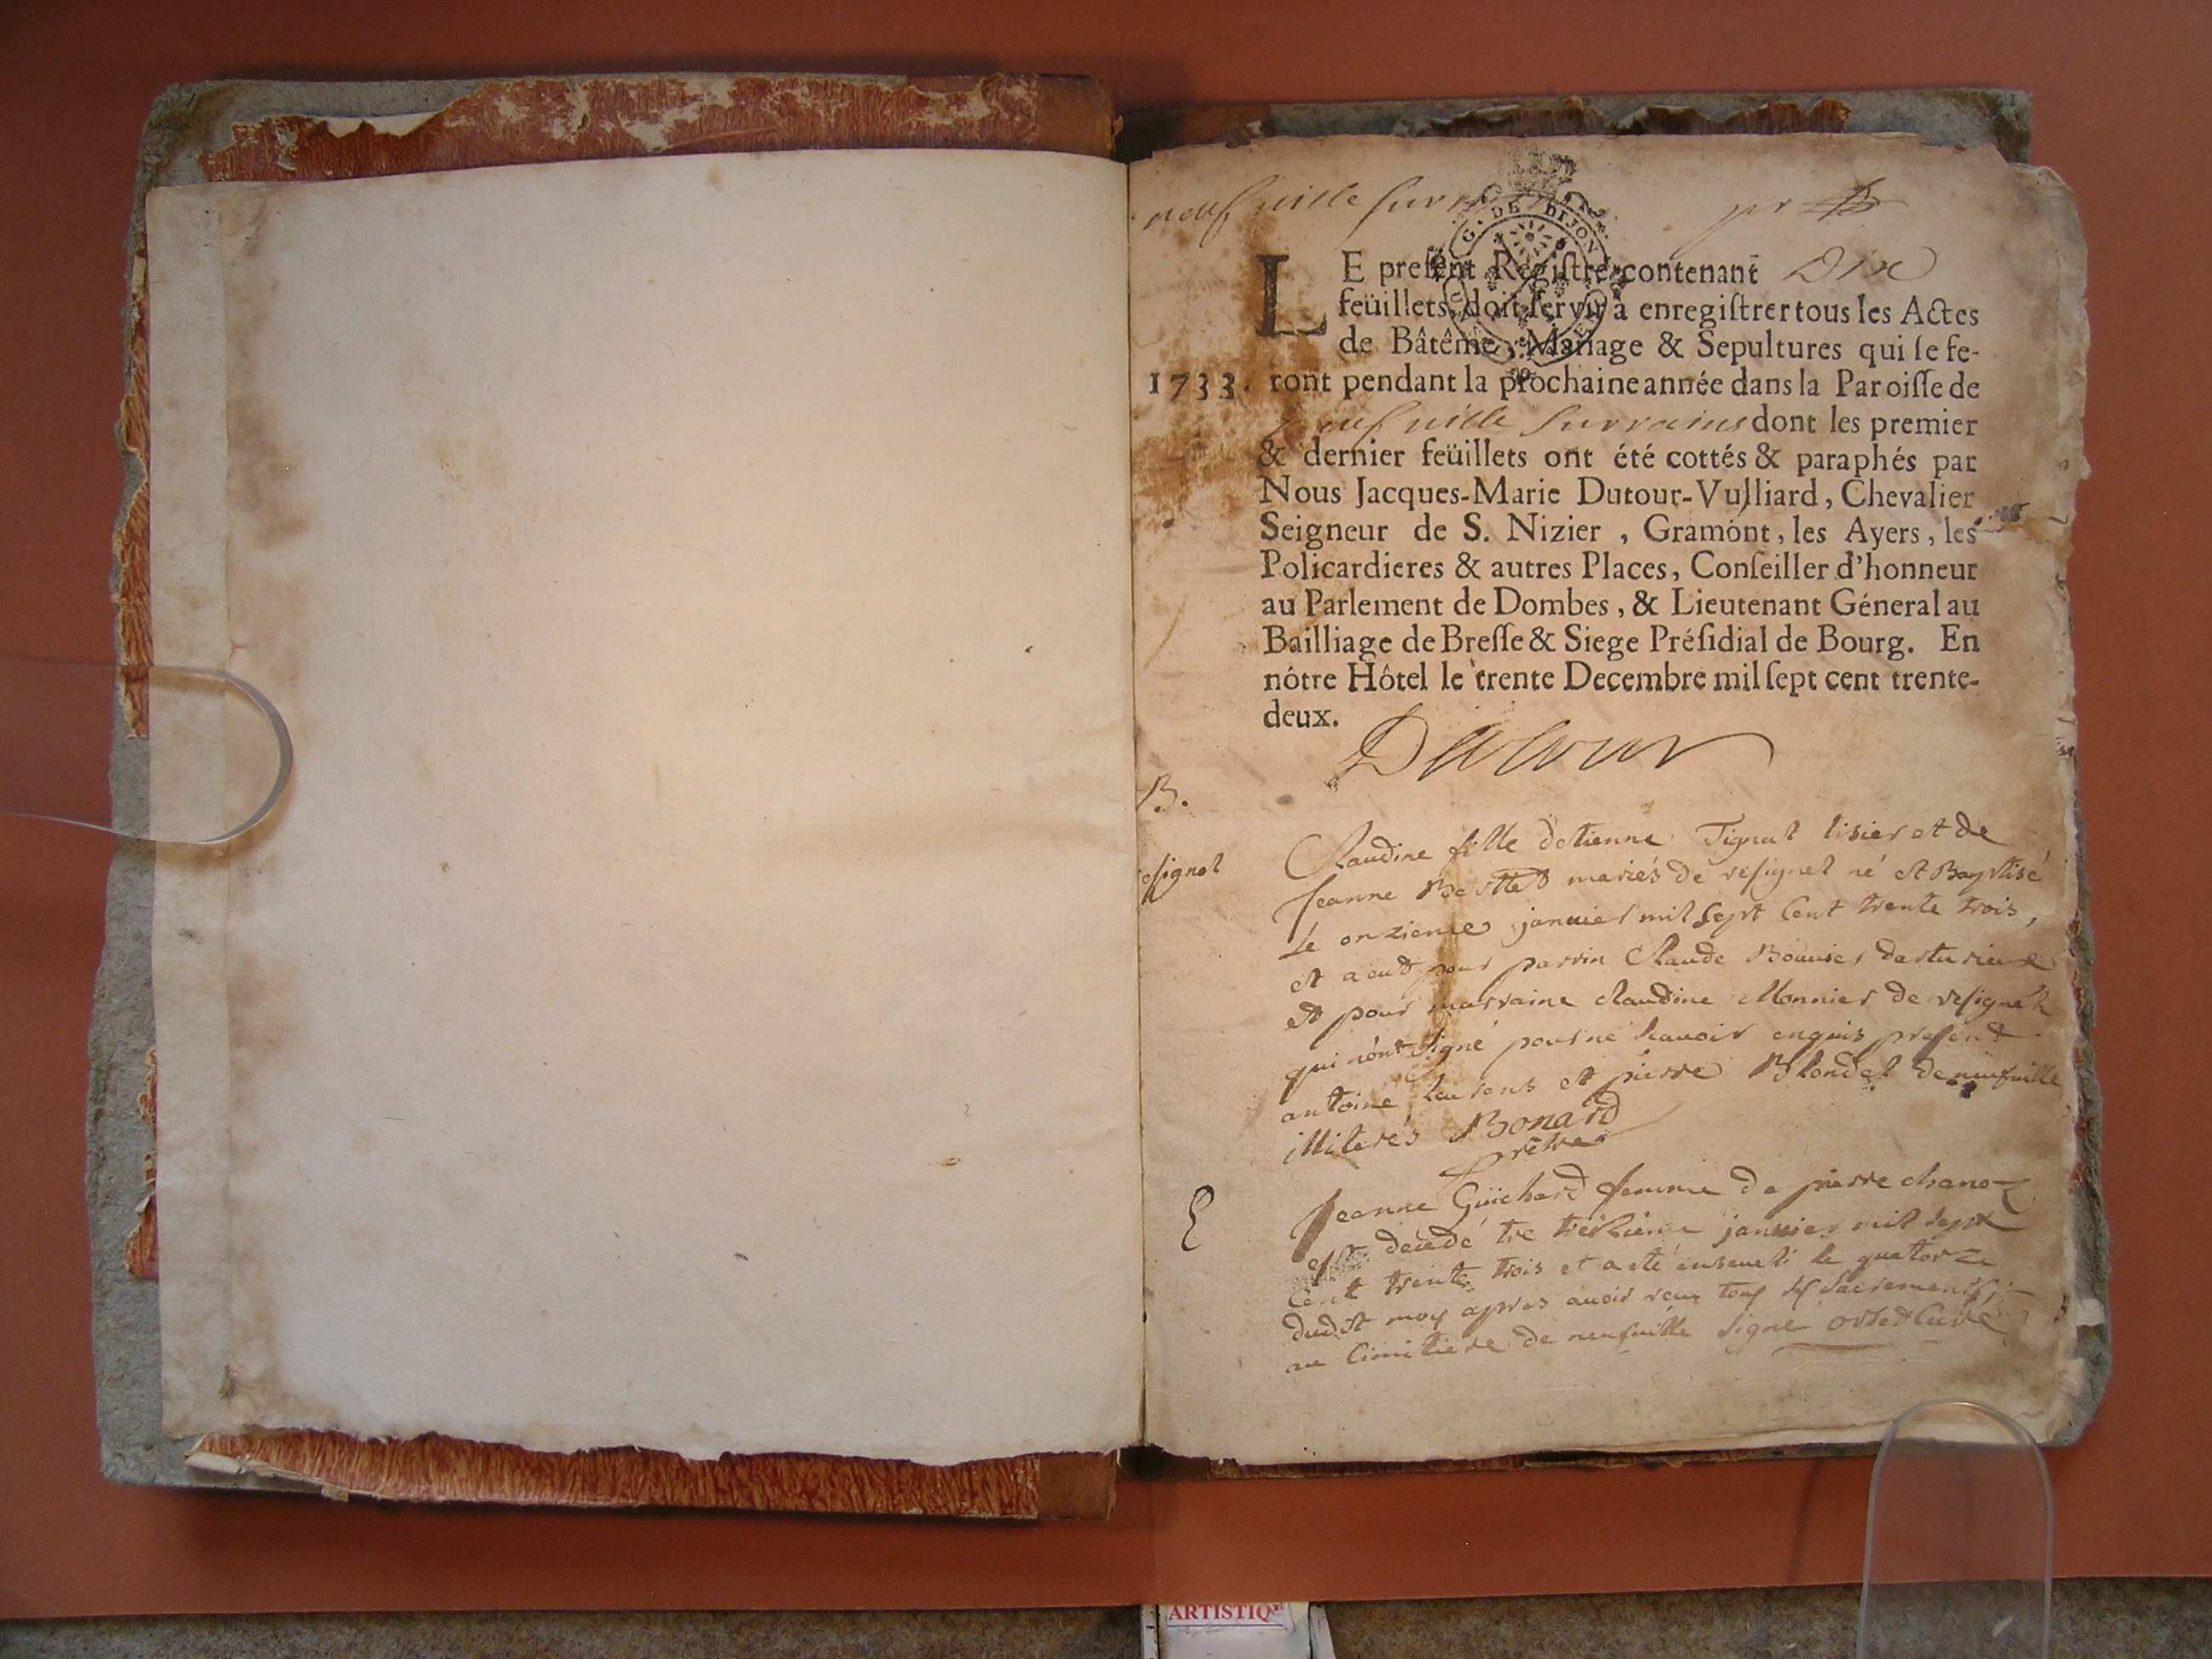 neufuille surrains
G. DE DIJON
LE present Registre contenant Dix
feüillets, doit servir à enregistrer tous les Actes
de Bâtême, Mariage & Sepultures qui se fe-
1733. ront pendant la prochaine année dans la Paroisse de
neufuille surrains dont les premier
& dernier feüillets ont été cottés & paraphés par
Nous Jacques-Marie Dutour-Vulliard, Chevalier
Seigneur de S. Nizier, Gramónt, les Ayers, les
Policardieres & autres Places, Conseiller d'honneur
au Parlement de Dombes, & Lieutenant Géneral au
Bailliage de Bresse & Siege Présidial de Bourg. En
nótre Hôtel le trente Decembre mil sept cent trente-
deux.
Dutour
B.
Claudine fille detienne Tignat tisier et de
Jeanne mariés de resignel né et Baptisé
Le onzieme januier mil sept Cent trente trois,
et a eut pour parrin Claude Bouuier
et pour marraine claudine Monnier de resignel
qui nónt signé pour ne scauoir enquis present
antoine laurens et pierre Blondel de neufuille
illiterés Bonard
prêtre
E
Jeanne Guichard femme de pierre chanoz
est decedé le treizieme januier mil sept
Cent trente trois et a eté enseueli le quatorze
dudit moy apres auoir receu tous ses sacrements,
au Cimitiere de neufuille signé curé
ARTISTIQ